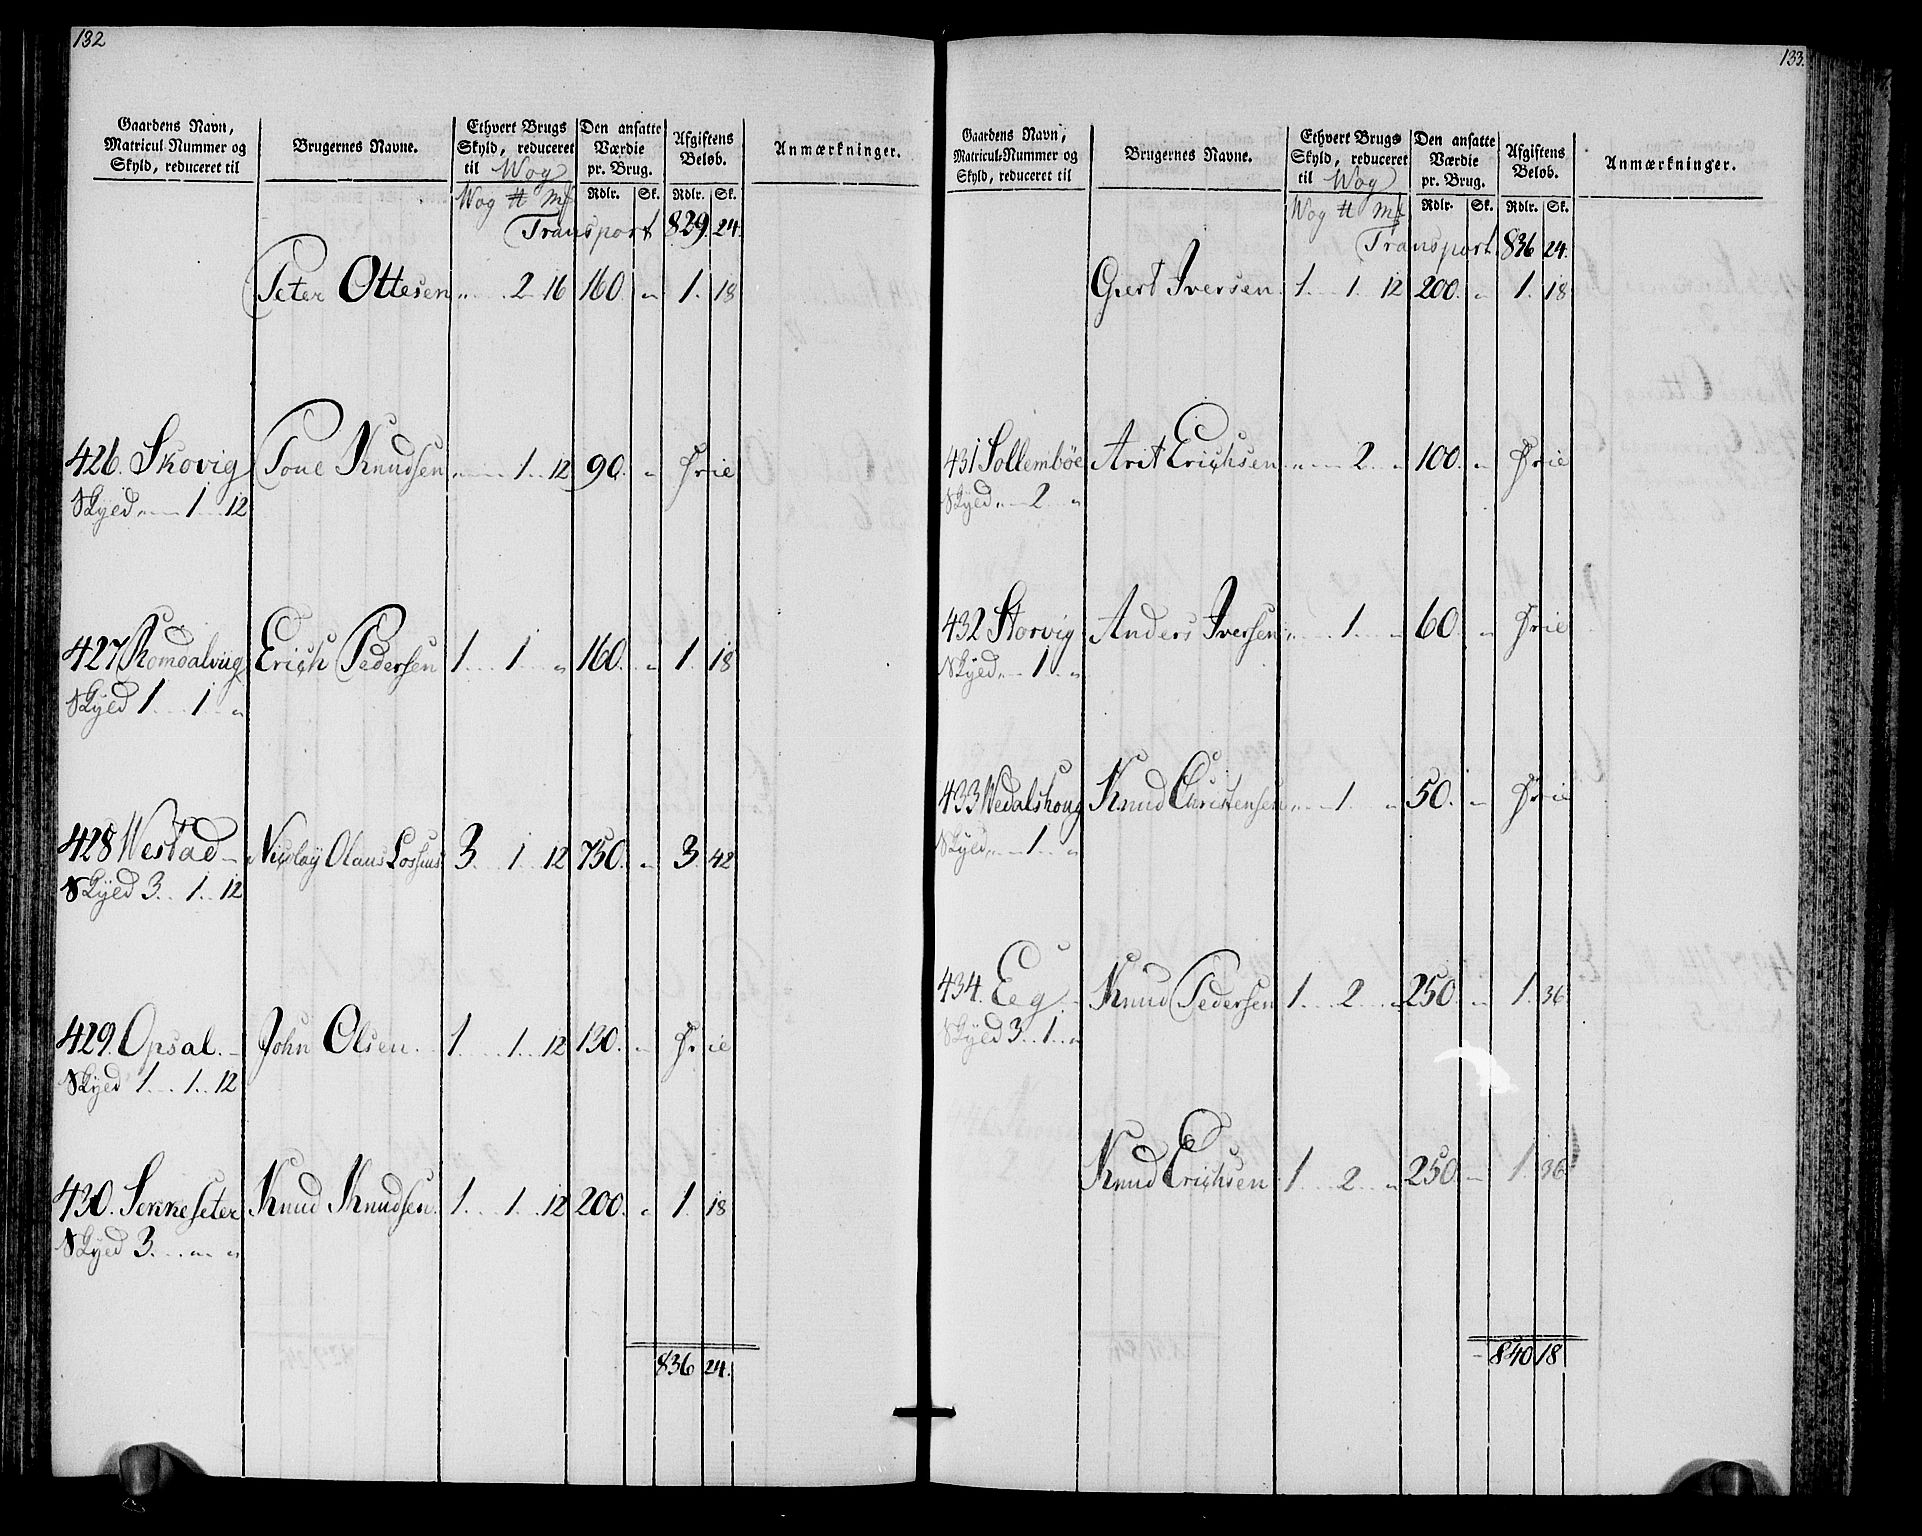 132
Gaardens Navn,
Matricul-Nummer og
Skyld, reduceret til
Brugernes Navne.
Ethvert Brugs
Skyld, reduceret
til Wog
Wog ℔ Mk
Den ansatte
Værdie
pr. Brug.
Rdlr. Sk.
Afgiftens
Beløb.
Rdlr. Sk.
Anmærkninger.
Transport 829. 24.
Peter Ottesen „ 2 16 160. „ 1. 18
426. Skovig Tone Knudsen „ 1 12 90. „ Frie
Skyld „ 1 12
427 Romdalviig Erich Pedersen 1 1 „ 160. „ 1. 18
Skyld 1 1 „
428 Westad Nicolay Olaus Loshuus 3. 1 12 750. „ 3. 42
Skyld 3. 1 12
429. Opsal. John Olsen. 1. 1. 12 130. „ Frie
Skyld 1 1. 12
430. Sennesæter Knud Knudsen. 1. 1. 12 200. „ 1. 18
Skyld 3. „ „
836 24.
133.
Gaardens Navn,
Matricul-Nummer og
Skyld, reduceret til
Brugernes Navne.
Ethvert Brugs
Skyld, reduceret
til Wog
Wog ℔ Mk
Den ansatte
Værdie
pr. Brug.
Rdlr. Sk.
Afgiftens
Beløb.
Rdlr. Sk.
Anmærkninger.
Transport. 836 24.
Giert Iversen 1. 1. 12 200. „ 1. 18
431 Sollembøe Arit Erichsen „ 2. „ 100. „ Frie
Skyld „ 2. „
432 Storvig Anders Iversen „ 1. „ 60. „ Frie
Skyld „ 1. „
433 Wedalshoug Knud Christensen „ 1. „ 50. „ Frie
Skyld „ 1. „
434. Eeg Knud Pedersen 1. 2. „ 250. „ 1. 36.
Skyld 3. 1. „
Knud Erichsen 1. 2. „ 250. „ 1. 36
840 18